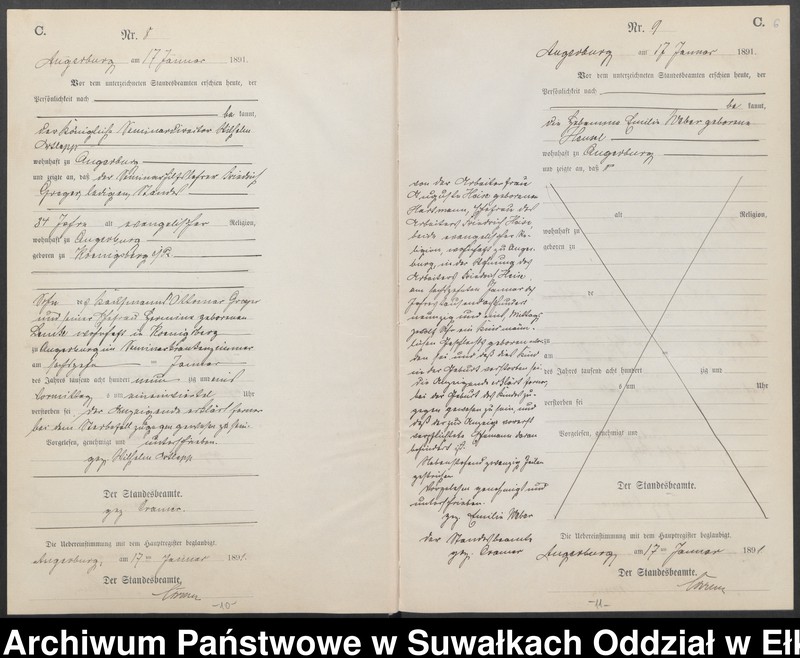 C.
Nr. 8
Angerburg am 17 Januar 1891.
Vor dem unterzeichneten Standesbeamten erschien heute, der
Persönlichkeit nach
be kannt,
der Königliche Seminardirector Wilhelm
wohnhaft zu Angerburg
und zeigte an, daß der Seminarhilfslehrer Friedrich
ledigen Standes
34 Jahre alt evangelischer Religion,
wohnhaft zu Angerburg
geboren zu Koenigsberg i/Pr.
Sohn des Kaufmanns
und seiner Ehefrau Hermine geborenen
wohnhaft in Koenigsberg
zu Angerburg im Seminarkrankenzimmer
am sechszehn ten Januar
des Jahres tausend acht hundert neun zig und eins
Vormittag s um ein einviertel Uhr
verstorben sei der Anzeigende erklärt ferner
bei dem Sterbefall zugegen gewesen zu sein.
Vorgelesen, genehmigt und unterschrieben
gez. Wilhelm
Der Standesbeamte.
gez. Cramer.
Die Uebereinstimmung mit dem Hauptregister beglaubigt.
Angerburg, am 17ten Januar 1891.
Der Standesbeamte.
-10-
C. 6
Nr. 9
Angerburg am 17 Januar 1891.
Vor dem unterzeichneten Standesbeamten erschien heute, der
Persönlichkeit nach
be kannt,
die Hebamme Emilie Weber geborene
Hensel
wohnhaft zu Angerburg
und zeigte an, daß
von der Arbeiterfrau
Auguste geborenen
Hartmann Ehefrau des
Arbeiters Friedrich
beide evangelischer Re-
ligion, wohnhaft zu Anger-
burg, in der Wohnung des
Arbeiters Friedrich
am sechszehnten Januar des
Jahres tausend achthundert
neunzig und eins Mittags
zwölf Uhr ein Kind männ-
lichen Geschlechts geboren wor-
den sei und daß dies Kind
in der Geburt verstorben sei.
Die Anzeigende erklärt ferner,
bei der Geburt des Kindes zu-
gegen gewesen zu sein, und
daß der zur Anzeige
verpflichtete Ehemann daran
behindert ist.
Nebenstehend zwanzig Zeilen
gestrichen
Vorgelesen genehmigt und
unterschrieben
gez. Emilie Weber
der Standesbeamte
gez. Cramer
alt Religion,
wohnhaft zu
geboren zu
de
zu
am
des Jahres tausend acht hundert zig und
s um Uhr
verstorben sei
Vorgelesen, genehmigt und
Der Standesbeamte.
Die Uebereinstimmung mit dem Hauptregister beglaubigt.
Angerburg, am 17ten Januar 1891
Der Standesbeamte.
-11-
Archiwum Państwowe w Suwałkach Oddział w Ełk